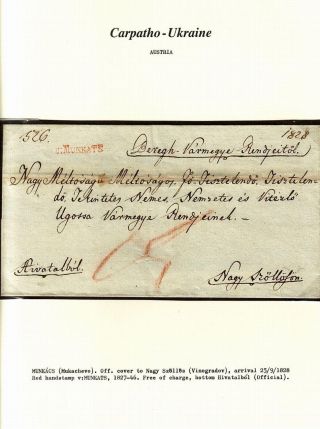 Carpatho-Ukraine
AUSTRIA
1526.
1828
v:MUNKATS
Beregh Vármegye Rendjeitől.
Nagy Méltóságú Méltóságos, Fő Tisztelendő, Tisztelen-
dő, Tekintetes Nemes, Nemzetes és Vitézlő
Ugossa Vármegye Rendjeinek. -
Hivatalból.
Nagy Szöllősön.
MUNKÁCS (Mukachevo). Off. cover to Nagy Szöllös (Vinogradov), arrival 25/9/1828
Red handstamp v:MUNKATS, 1827-46. Free of charge, bottom Hivatalból (Official).